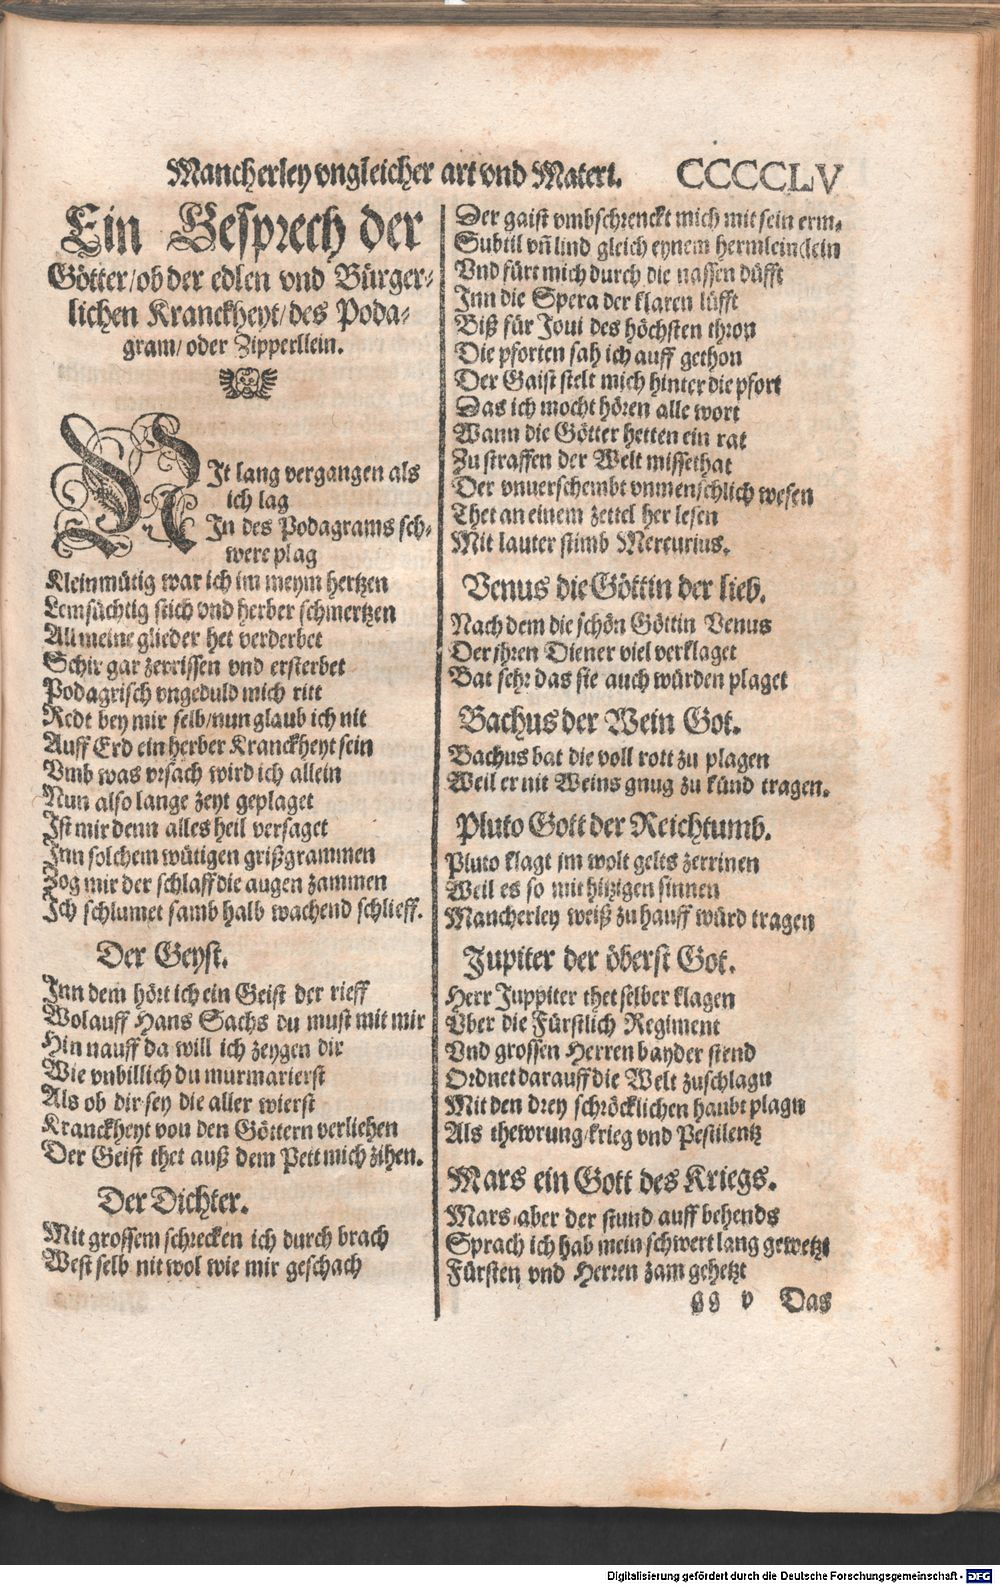 Mancherley vngleicher art vnd Materi. CCCCCLV
Ein Gesprech der
Götter/ob der edlen vnd Bürger-
lichen Kranckheyt/des Poda-
gram/oder Zipperllein.
NIt lang vergangen als
ich lag
In des Podagrams sch-
were plag
Kleinmütig war ich im meym hertzen
Lemsüchtig stich vnd herber schmertzen
All meine glieder het verderbet
Schir gar zerrissen vnd ersterbet
Podagrisch vngeduld mich ritt
Redt bey mir selb/nun glaub ich nit
Auff Erd ein herber Kranckheyt sein
Vmb was vrsach wird ich allein
Nun also lange zeyt geplaget
Ist mir denn alles heil versaget
Inn solchem wütigen grißgrammen
Zog mir der schlaff die augen zammen
Ich schlumet samb halb wachend schlieff.
Der Geyst.
Inn dem hört ich ein Geist der rieff
Wolauff Hans Sachs du must mit mir
Hin nauff da will ich zeygen dir
Wie vnbillich du murmarierst
Als ob dir sey die aller wierst
Kranckheyt von den Göttern verliehen
Der Geist thet auß dem Pett mich zihen.
Der Dichter.
Mit grossem schrecken ich durch brach
West selb nit wol wie mir geschach
Der gaist vmbschrenckt mich mit sein erm-
Subtil vñ lind gleich eynem hermlein clein
Vnd fürt mich durch die nassen düfft
Inn die Spera der klaren lüfft
Biß für Joui des höchsten thron
Die pforten sah ich auff gethon
Der Gaist stelt mich hinter die pfort
Das ich mocht hören alle wort
Wann die Götter hetten ein rat
Zu straffen der Welt missethat
Der vnuerschembt vnmenschlich wesen
Thet an einem zettel her lesen
Mit lauter stimb Mercurius.
Venus die Göttin der lieb.
Nach dem die schön Göttin Venus
Der ihren Diener viel verklaget
Bat sehr das sie auch würden plaget
Bachus der Wein Got.
Bachus bat die voll rott zu plagen
Weil er nit Weins gnug zu künd tragen.
Pluto Gott der Reichtumb.
Pluto klagt jm wolt gelts zerrinen
Weil es so mit hitzigen sinnen
Mancherley weiß zu hauff würd tragen
Jupiter der öberst Got.
Herr Juppiter thet selber klagen
Vber die Fürstlich Regiment
Vnd grossen Herren bayder stend
Ordnet darauff die Welt zuschlagn
Mit den drey schröcklichen haubt plagn
Als thewrung/krieg vnd Pestilentz
Mars ein Gott des Kriegs.
Mars aber der stund auff behends
Sprach ich hab mein schwert lang gewetzt
Fürsten vnd Herren zam gehetzt
gg v Das
Digitalisierung gefördert durch die Deutsche Forschungsgemeinschaft - DFG